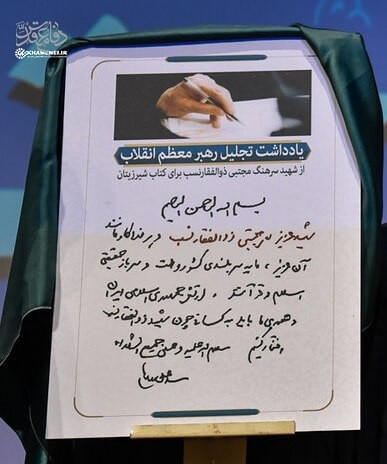 دفاع‌مقدس
KHAMENEI.IR
یادداشت تجلیل رهبر معظم انقلاب
از شهید سرهنگ مجتبی ذوالفقارنسب برای کتاب شیرزیتان
بسم الله الرحمن الرحیم
شهید عزیز مجتبی ذوالفقارنسب و هر فداکار مانند
آن عزیز، مایه سربلندی کشور و ملت و سرباز حقیقی
اسلام و قرآنند. ارتش جمهوری اسلامی ایران
و همه‌ی ما باید به کسانی چون شهید ذوالفقاری‌نسب
افتخار کنیم سلام الله علیه و علی جمیع الشهداء